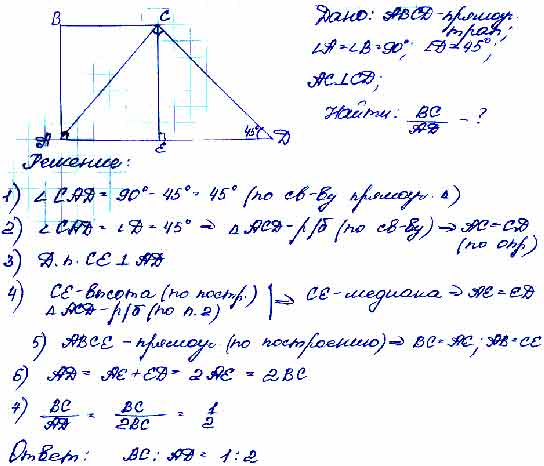 B C
Дано: ABCD-прямоуг.
трап;
∠A=∠B=90°; ∠D=45°;
AC⊥CD;
Найти: BC/AD - ?
A E 45° D
Решение:
1) ∠CAD = 90°-45° = 45° (по св-ву прямоуг. Δ)
2) ∠CAD = ∠D = 45° ⇒ ΔACD-р/б (по св-ву) ⇒ AC=CD
(по опр)
3) Д.п. CE⊥AD
4) CE-высота (по постр.)
ΔACD-р/б (по п.2) ⇒ CE-медиана ⇒ AE=ED
5) ABCE-прямоуг (по построению) ⇒ BC=AE; AB=CE
6) AD = AE+ED = 2AE = 2BC
7) BC/AD = BC/2BC = 1/2
Ответ: BC:AD = 1:2